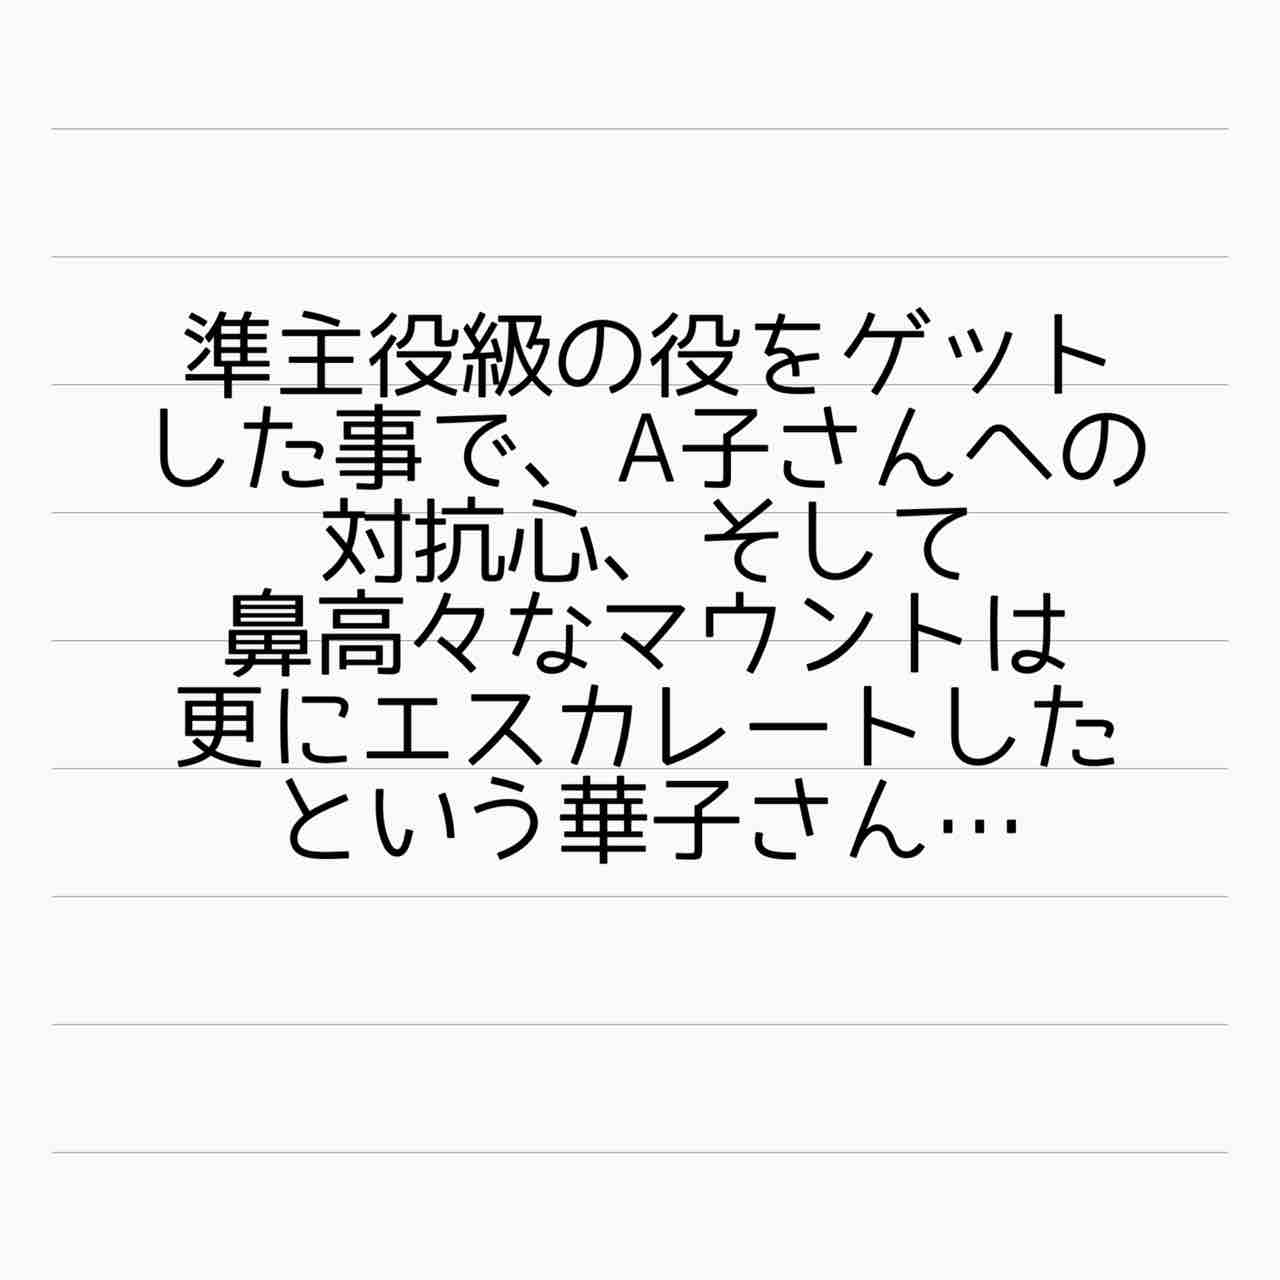 準主役級の役をゲット
した事で、A子さんへの
対抗心、そして
鼻高々なマウントは
更にエスカレートした
という華子さん…